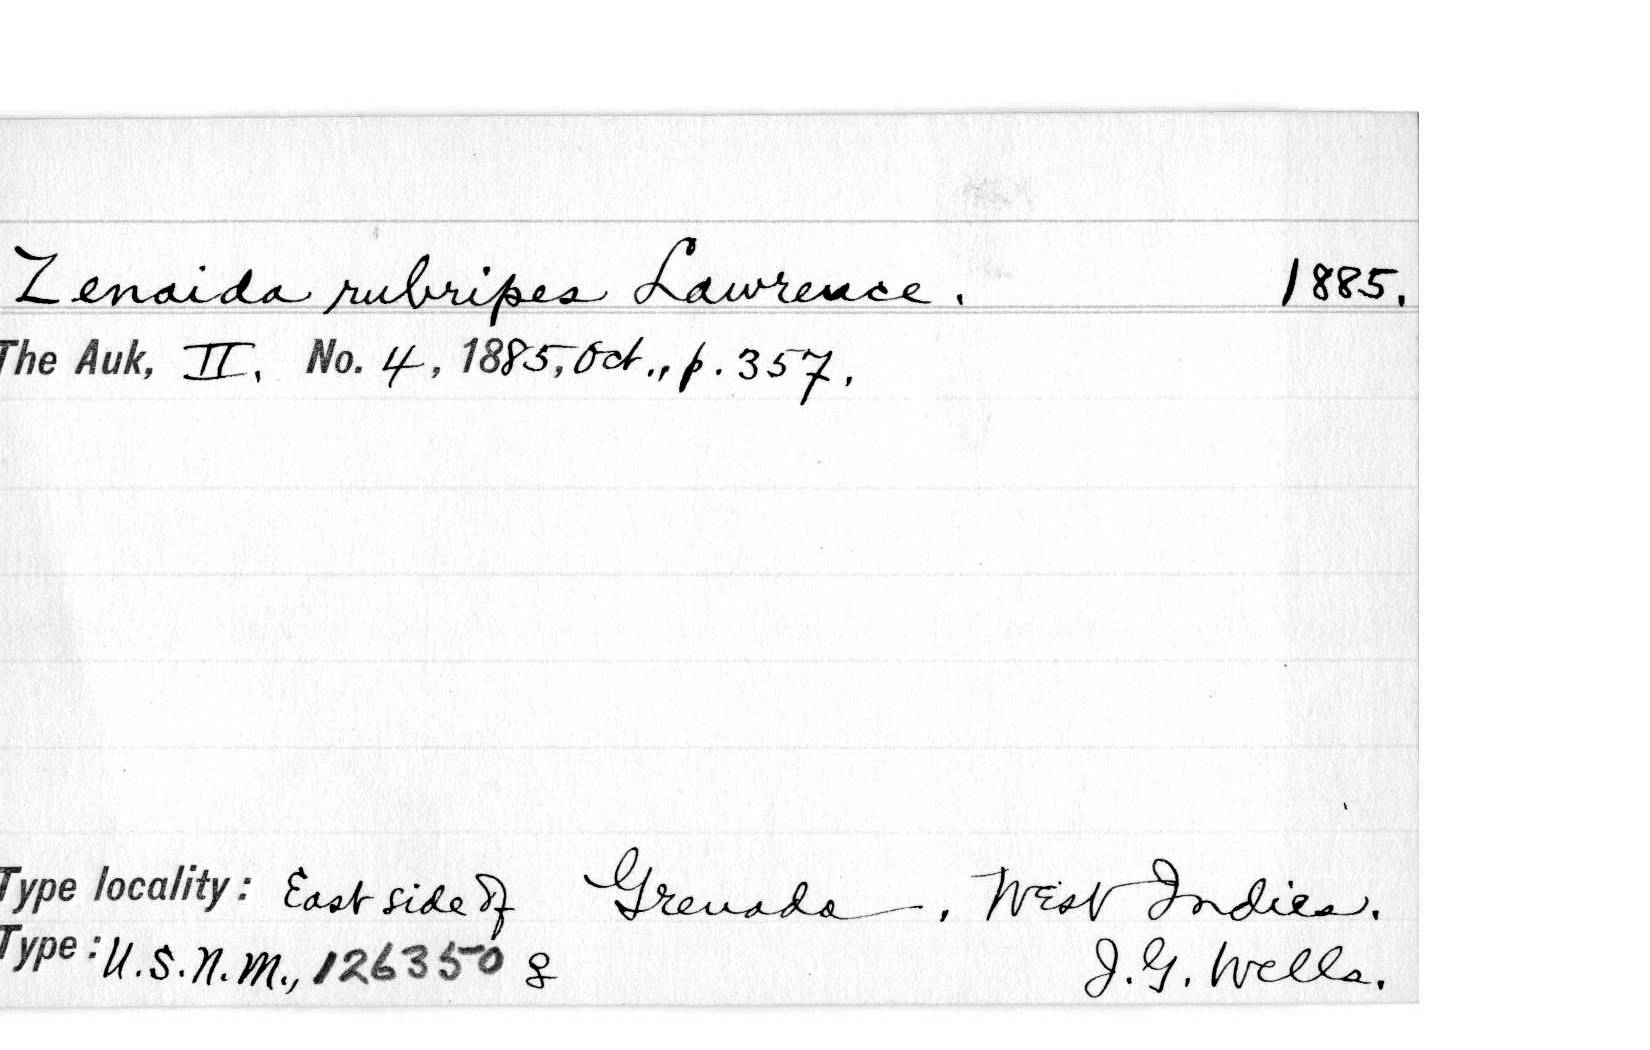 Zenaida rubripes Lawrence. 1885.
The Auk, II. No. 4, 1885, Oct., p. 357.
Type locality: East side of Grenada, West Indies.
Type: U.S.N.M., 126350 J.G. Wells.